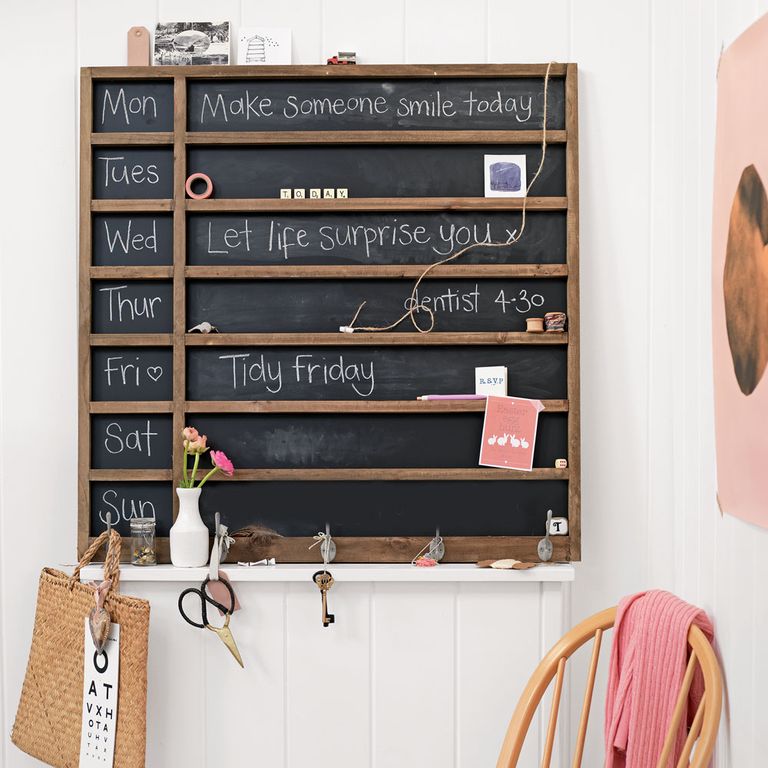 Mon
Make someone smile today
Tues
TODAY
Wed
Let life surprise you x
Thur
dentist 4-30
Fri♡
Tidy Friday
R.S.V.P
Sat
Easter
egg
hunt
Sun
T
O
AT
VXO